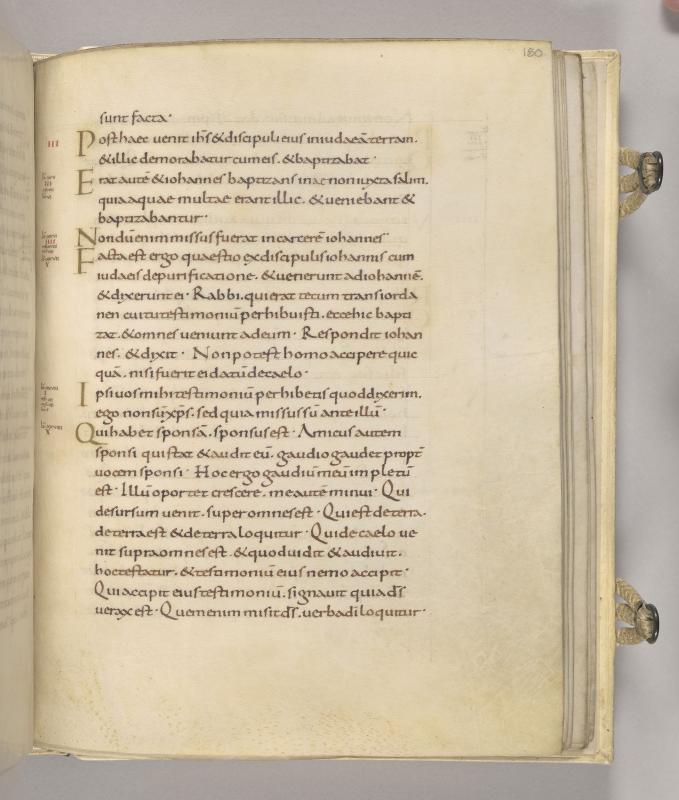 180
sunt facta·
III
Post haec uenit ihs & discipuli eius in iudaeā terram.
& illic demorabatur cum eis. & baptizabat·
Erat autē & iohannes baptizans in aenon iuxta salim.
quia aquae multae erant illic. & ueniebant &
baptizabantur·
Nondū enim missus fuerat in carcerē iohannes
Facta est ergo quaestio ex discipulis iohannis cum
iudaeis de purificatione. & uenerunt ad iohannē.
& dixerunt ei· Rabbi. qui erat tecum trans iorda
nen cui tu testimoniū perhibuisti. ecce hic bapti
zat. & omnes ueniunt ad eum· Respondit iohan
nes. & dixit· Non potest homo accipere quic
quā. nisi fuerit ei datū de caelo·
Ipsi uos mihi testimoniū perhibetis quod dixerim.
ego non sū xps. sed quia missus sū ante illū·
Qui habet sponsā. sponsus est· Amicus autem
sponsi qui stat & audit eū. gaudio gaudet propt
uocem sponsi· Hoc ergo gaudiū meū impletū
est· Illū oportet crescere. me autē minui· Qui
desursum uenit. super omnes est· Qui est de terra.
de terra est & de terra loquitur· Qui de caelo ue
nit supra omnes est. & quod uidit & audiuit.
hoc testatur. & testimoniū eius nemo accipit·
Qui accipit eius testimoniū. signauit quia ds
uerax est· Quem enim misit ds. uerba di loquitur·